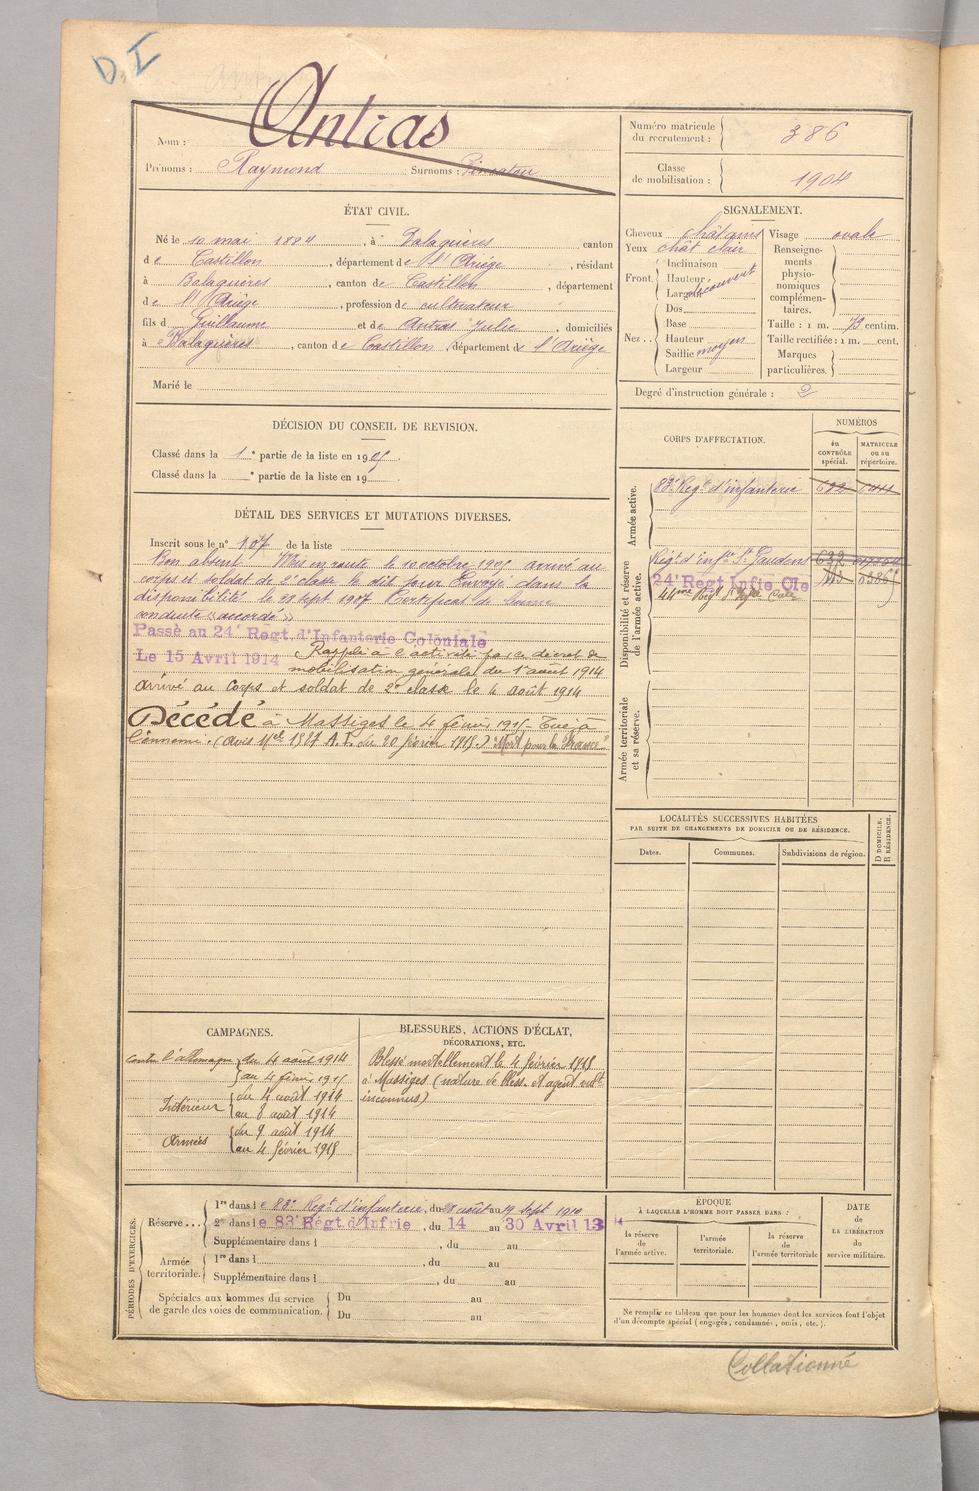 D. I
Nom : Antras
Prénoms : Raymond Surnoms :
Numéro matricule du recrutement : 386
Classe de mobilisation : 1904
ÉTAT CIVIL.
Né le 10 mai 1884, à Balaguères canton
de Castillon, département de l'Ariège, résidant
à Balaguères, canton de Castillon, département
de l'Ariège, profession de cultivateur
fils d Guillaume et de Antras Julie, domiciliés
à Balaguères, canton de Castillon, département de l'Ariège
Marié le
SIGNALEMENT.
Cheveux châtains
Yeux chât clair
Front Inclinaison
Hauteur
Largeur
découvert
Nez Dos
Base
Hauteur
Saillie moyen
Largeur
Visage ovale
Renseignements physionomiques complémentaires.
Taille : 1 m. 73 centim.
Taille rectifiée : 1 m. cent.
Marques particulières.
Degré d'instruction générale : 2
DÉCISION DU CONSEIL DE REVISION.
Classé dans la 1e partie de la liste en 1905.
Classé dans la e partie de la liste en 19
DÉTAIL DES SERVICES ET MUTATIONS DIVERSES.
Inscrit sous le n° 107 de la liste
Bon absent Mis en route le 10 octobre 1905 arrivé au
corps et soldat de 2e classe le dit jour Envoyé dans la
disponibilité le 28 sept 1907 Certificat de bonne
conduite "accordé"
Passé au 24e Régt. d'Infanterie Coloniale
Le 15 Avril 1914 Rappelé à l'activité par ce décret de
mobilisation générale du 1er août 1914
Arrivé au Corps et soldat de 2e classe le 4 août 1914
Décédé à Massiges le 4 février 1915 Tué à
l'ennemi. (Avis Mel 1887 A.T. du 20 février 1915.) "Mort pour la France"
CORPS D'AFFECTATION.
NUMÉROS
au CONTRÔLE spécial.
MATRICULE ou au répertoire.
Armée active.
83e Régt d'infanterie 632
Disponibilité et réserve de l'armée active.
Régt d'infie St Gaudens 632
24e Regt Infie Cle
Armée territoriale et sa réserve.
LOCALITÉS SUCCESSIVES HABITÉES
PAR SUITE DE CHANGEMENTS DE DOMICILE OU DE RÉSIDENCE.
Dates. Communes. Subdivisions de région. D DOMICILE. R RÉSIDENCE.
CAMPAGNES.
Contre l'allemagne du 4 août 1914
au 4 février 1915
Intérieur du 4 août 1914
au 8 août 1914
Armées du 9 août 1914
au 4 février 1915
BLESSURES, ACTIONS D'ÉCLAT,
DÉCORATIONS, ETC.
Blessé mortellement le 4 février 1915
à Massiges (nature de bless. et agent vult
inconnus)
PÉRIODES D'EXERCICES.
Réserve... 1re dans le 83e Régt d'infanterie, du 28 août au 19 sept 1910
2e dans le 83e Régt d'Infrie, du 14 au 30 Avril 13
Supplémentaire dans l , du au
Armée territoriale. 1re dans l , du au
Supplémentaire dans l , du au
Spéciales aux hommes du service
de garde des voies de communication. Du au
Du au
ÉPOQUE
À LAQUELLE L'HOMME DOIT PASSER DANS :
la réserve de l'armée active.
l'armée territoriale.
la réserve de l'armée territoriale
DATE DE LA LIBÉRATION du service militaire.
Ne remplir ce tableau que pour les hommes dont les services font l'objet
d'un décompte spécial (engagés, condamnés, omis, etc.).
Collationné